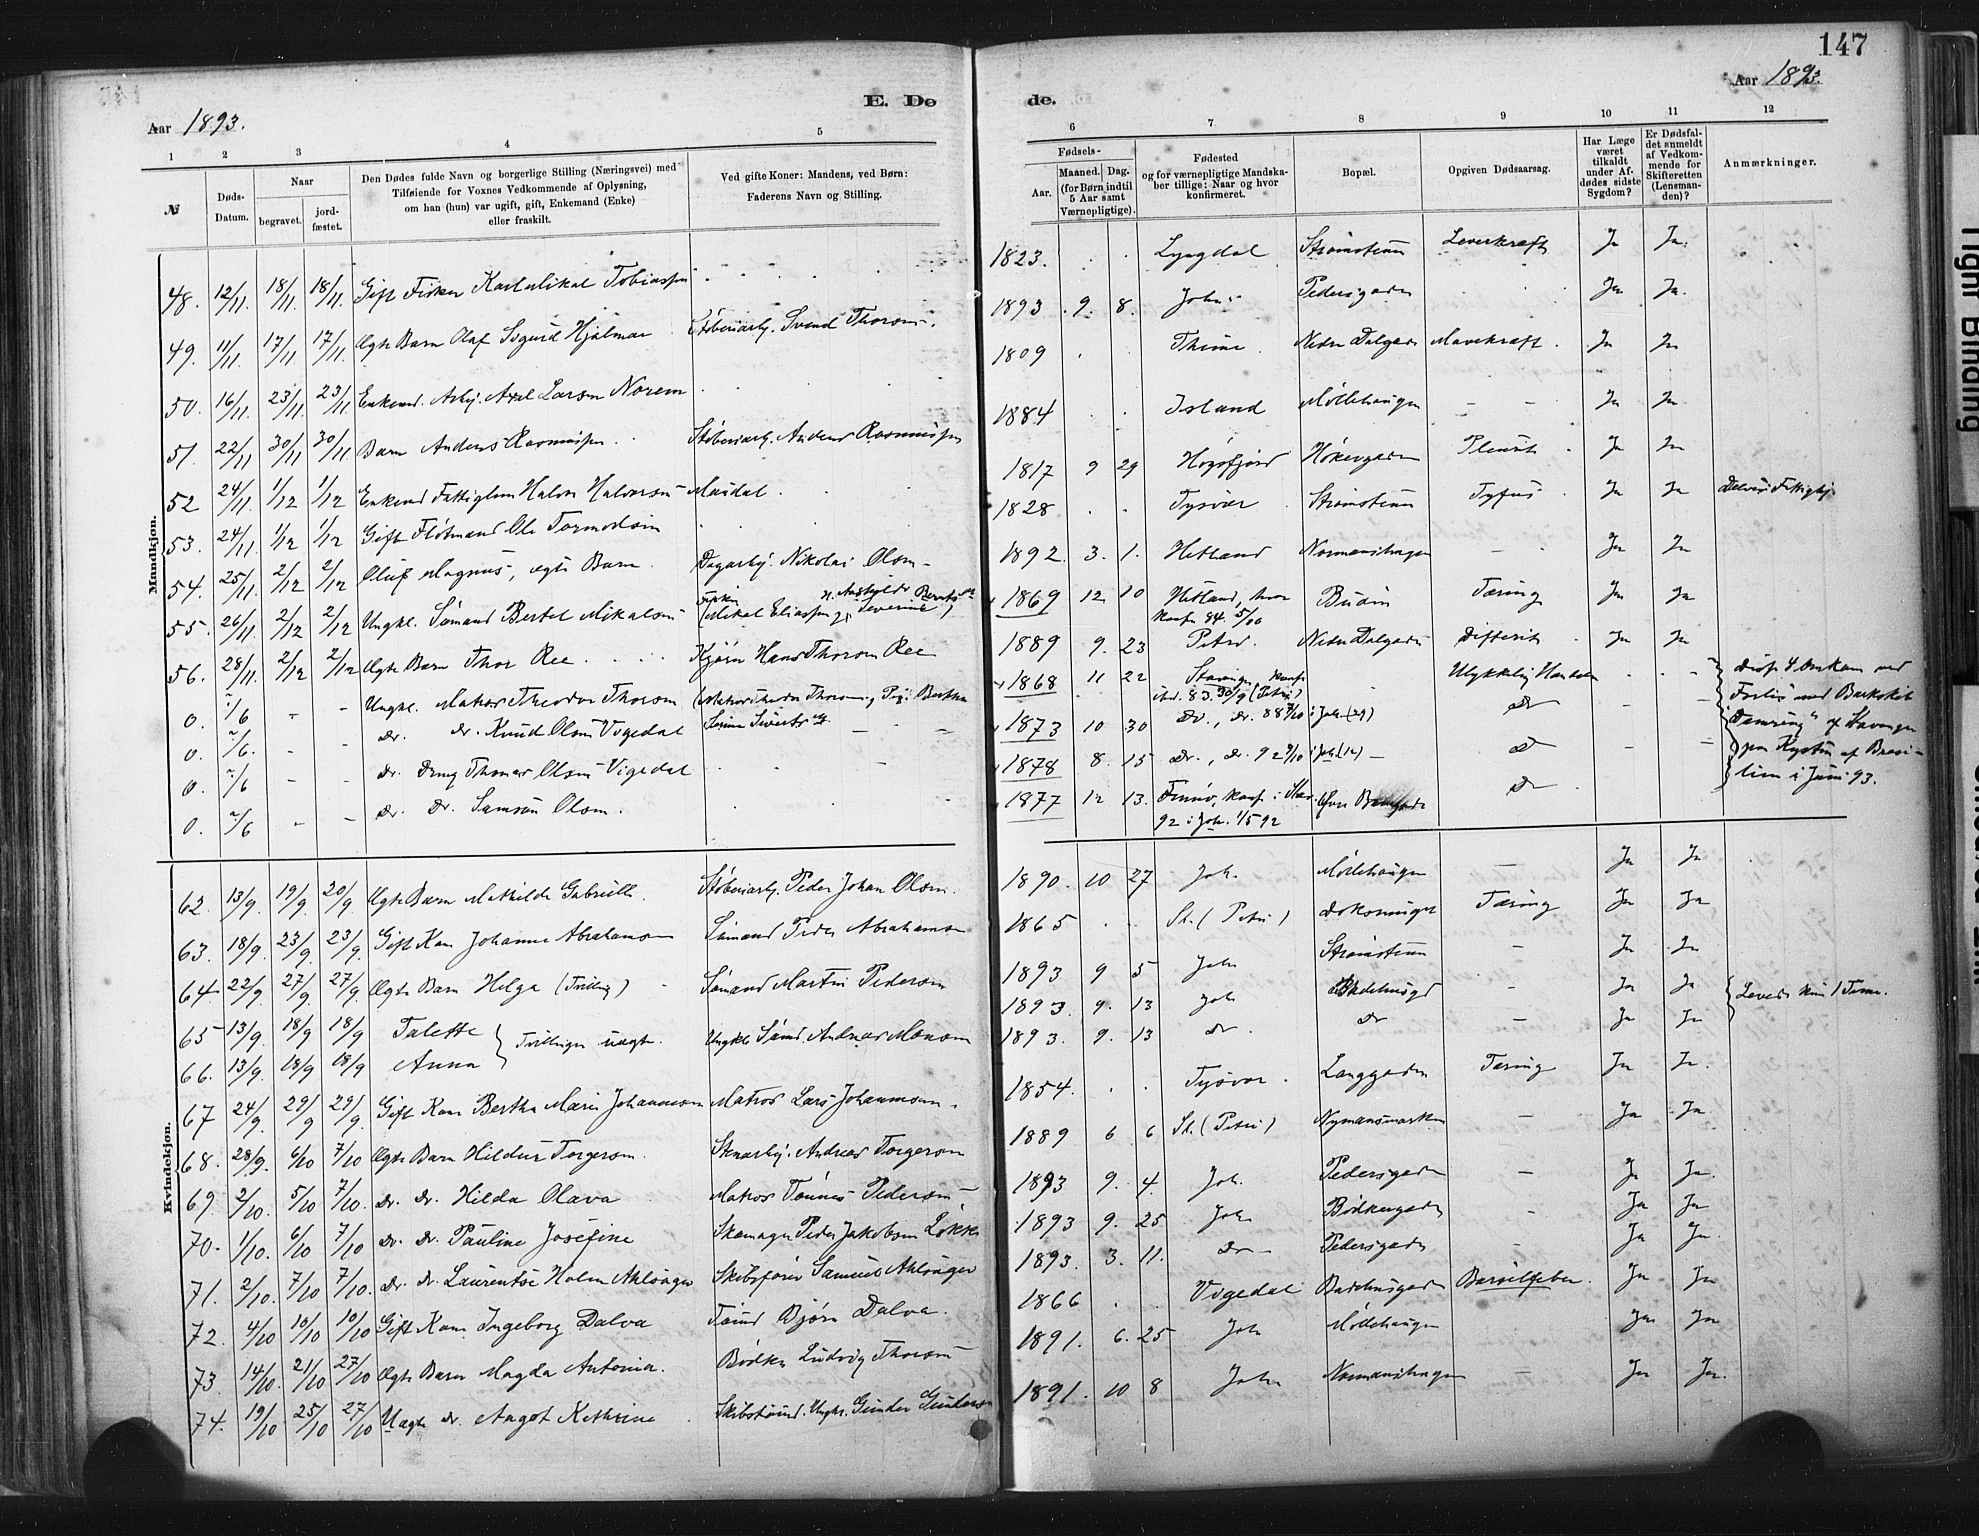 147
Aar 1893.
E. Dø
de.
Aar 1893.
1 2 3 4 5
6 7 8 9 10 11 12
№
Døds-Datum.
Naar
begravet.
jord-fæstet.
Den Dødes fulde Navn og borgerlige Stilling (Næringsvei) med
Tilføiende for Voxnes Vedkommende af Oplysning,
om han (hun) var ugift, gift, Enkemand (Enke)
eller fraskilt.
Ved gifte Koner: Mandens, ved Børn:
Faderens Navn og Stilling.
Fødsels-
Aar.
Maaned. Dag.
(for Børn indtil
5 Aar samt
Værnepligtige).
Fødested
og for værnepligtige Mandska-
ber tillige: Naar og hvor
konfirmeret.
Bopæl.
Opgiven Dødsaarsag.
Har Læge
været
tilkaldt
under Af-
dødes sidste
Sygdom?
Er Dødsfal-
det anmeldt
af Vedkom-
mende for
Skifteretten
(Lensman-
den)?
Anmærkninger.
Mandkjøn.
48. 12/11. 18/11. 18/11. Gift Fisker Karl Mikal Tobiassen 1823. Lyngdal Strømsteen Leverkræft Ja Ja.
49. 11/11. 17/11 17/11. Ægte Barn Olaf Sigurd Hjalmar Støberiarb. Svend Thorsen. 1893 9. 8. Joh. Pedersgaden Ja Ja.
50. 16/11. 23/11. 23/11. Enkemd. Arbj. Axel Larsen Norem 1809 Thime Nedre Dalgade Mavekræft. Ja Ja
51. 22/11 30/11 30/11. Barn Anders Rasmussen Støberiarb. Anders Rasmussen 1884 Island Møllehaugen — — Ja Ja
52 24/11. 1/12 1/12 Enkemd Fattiglem Halvor Halvorsen Maudal 1817 9 29 Høgsfjord Høkergaden Pleurit Ja Ja
53. 24/11. 1/12 1/12 Gift Flötmand Ole Tormodsen 1828 Tysvær Strømsteen Tyfus Ja Ja
54. 25/11. 2/12 2/12 Oluf Magnus, ægte Barn Dagarbj. Nikolai Olsen 1892. 3. 1. Hetland Normanshagen — Ja Ja
55. 26/11. 2/12 2/12 Ungkl. Sømand Bertel Mikalsen Fisker Mikal Eliassen og Severine 1869 12 10 Hetland, Budin Tæring Ja Ja
56. 28/11. 2/12 2/12 Ægte Barn Thor Ree Kjørn Hans Thorsen Ree 1889 9. 23 Petri Nedre Dalgade Difterit Ja Ja
0. 7/6 - - Ungkl. Matros Theodor Thorsen 1868 11 22 Stavanger, konf. 83. 30/9 (Petri) Ulykkelig Hændelse
0. 7/6. - - Dr. Dr. Knud Olsen Vigedal 1873 10 30 Dr., Dr. 88 i Joh. Dr
0. 7/6 - - Dr. Dreng Thomas Olsen Vigedal 1878 8. 15 Dr., Dr. 92 i Joh. Dr
0. 7/6 - - Dr. Dr. Samson Olsen. 1877 12 13. Finnø, konf. i Stav. 92 i Joh. 1/5 92 Øvre Dr
Forlis med Barkskib
af Stavanger
paa Kysten af Brasi-
lien i Juni 93.
Kvindekjøn.
62. 13/9. 19/9. 20/9. Ægte Barn Mathilde Gabrielle. Støberiarb. Peder Johan Olsen. 1890. 10 27 Joh. Møllehaugen — Ja Ja
63. 18/9. 23/9. 23/9. Gift Kone Johanne Abrahamsen Sømand Peder Abrahamsen 1865 St. (Petri) Tæring Ja Ja
64 22/9. 27/9. 27/9. Ægte Barn Helga (Tvilling) Sømand Martin Pedersen 1893 9 5 Joh Strømsteen — Ja Ja
65 13/9. 18/9 18/9 Talette } Tvillinger uægte. Ungkl. Sømd. Andreas Monsen 1893. 9. 13 Joh — Ja Ja Levede kun 1 Time.
66. 13/9. 18/9 18/9 Anna 1893. 9. 13 Dr. Dr — Ja Ja
67 24/9. 29/9 29/9. Gift Kone Bertha Marie Johannessen Matros Lars Johannessen. 1854. Tysvær. Langgaden Tæring Ja Ja.
68. 28/9. 6/10 7/10 Ægte Barn Hildur Torgersen. Stenarbj. Andreas Torgersen 1889 6 6 St. (Petri) Nymansmarken — Ja Ja
69. 2/10. 5/10 7/10. Dr. Dr. Hilda Olava Matros Tønnes Pedersen 1893 9. 4. Joh. Pedersgaden — Ja Ja.
70. 1/10. 6/10 7/10 Dr. Dr. Pauline Josefine Skomager Peder Jakobsen Løkke 1893 9. 25 Joh Bødkergaden Ja Ja
71. 2/10. 7/10 7/10. Dr. Dr. Laurentse Holm Ahlsager Skibsfører Samuel Ahlsager 1893. 3. 11. Dr Pedersgade — Ja Ja.
72. 4/10 10/10 10/10 Gift Kone Ingeborg Dalva Bjørn Dalva. 1866 Vigedal Badehusgaden Barselfeber. Ja Ja
73. 14/10. 21/10 27/10 Ægte Barn Magda Antonia. Bødker Ludvig Thorsen 1891. 6. 25 Joh Møllehaugen Ja Ja
74. 19/10 25/10 27/10 Uægte Dr. Angot Kathrine Skibstømd. Ungk. Gunder Gundersen 1891. 10 8 Joh Normanshagen — Ja Ja.